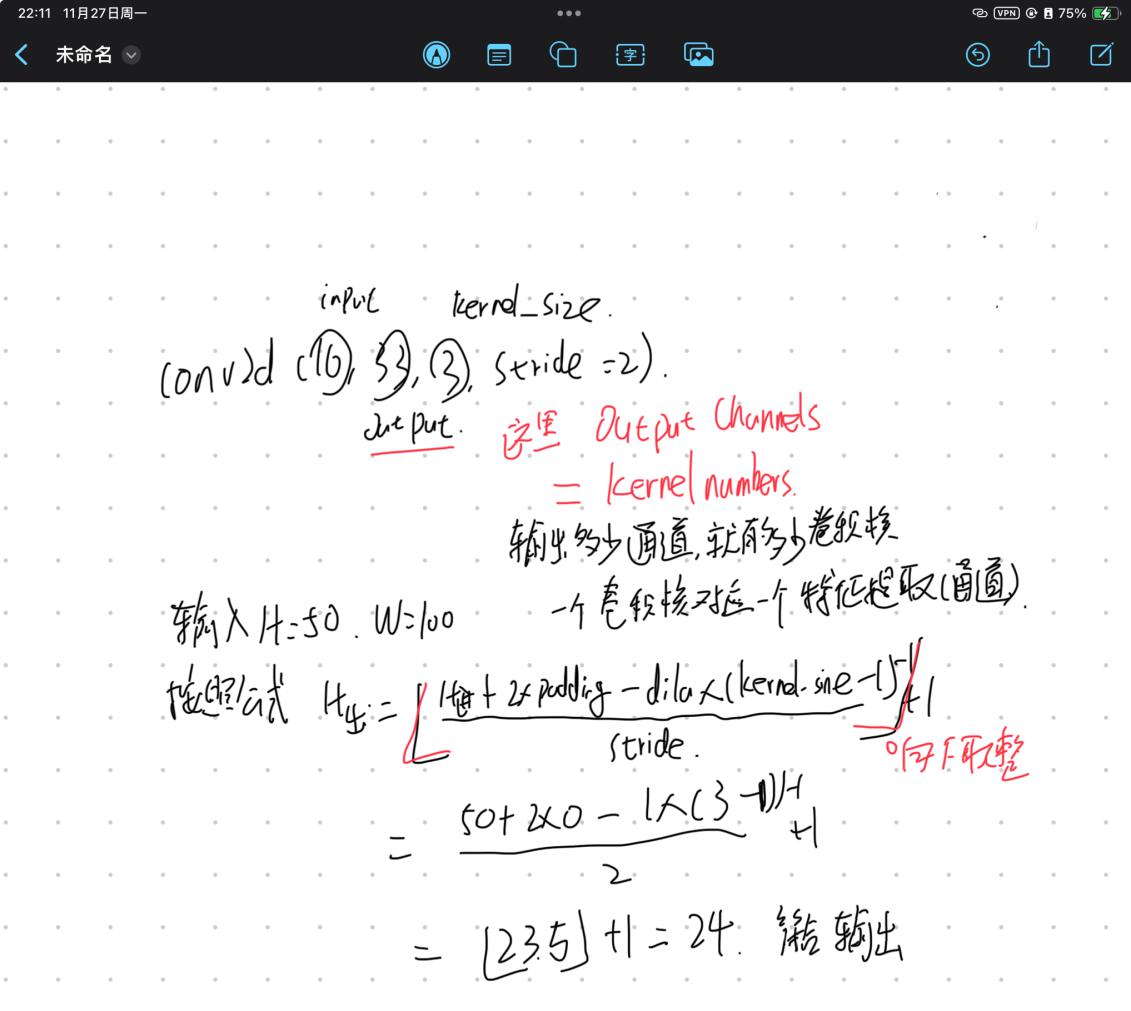 22:11 11月27日周一 VPN 75%
未命名
字
input kernel_size.
Conv2d (16, 33, 3, stride =2).
output. 这里 Output Channels
= kernel numbers.
输出多少通道,就有多少卷积核
一个卷积核对应一个特征提取(通道).
输入H=50. W=100
按照公式 H出= [H进 + 2×padding - dila×(kernel-size -1)-1] +1
stride.
向下取整
= 50+2×0 - 1×(3-1)-1 +1
2
= [23.5] +1 = 24. 输出